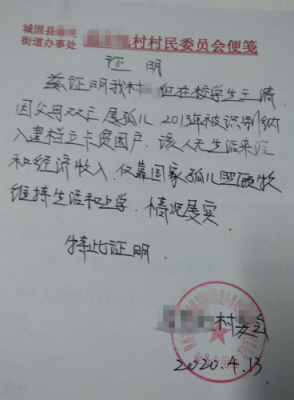 城固县
街道办事处 村村民委员会便笺
证明
兹证明我村 组在校学生王
因父母双亡属孤儿 2013年被识别纳
入建档立卡贫困户，该人无生活来源
和经济收入，仅靠国家孤儿 
维持生活和上学，情况属实
特此证明
村委会
2020.4.13